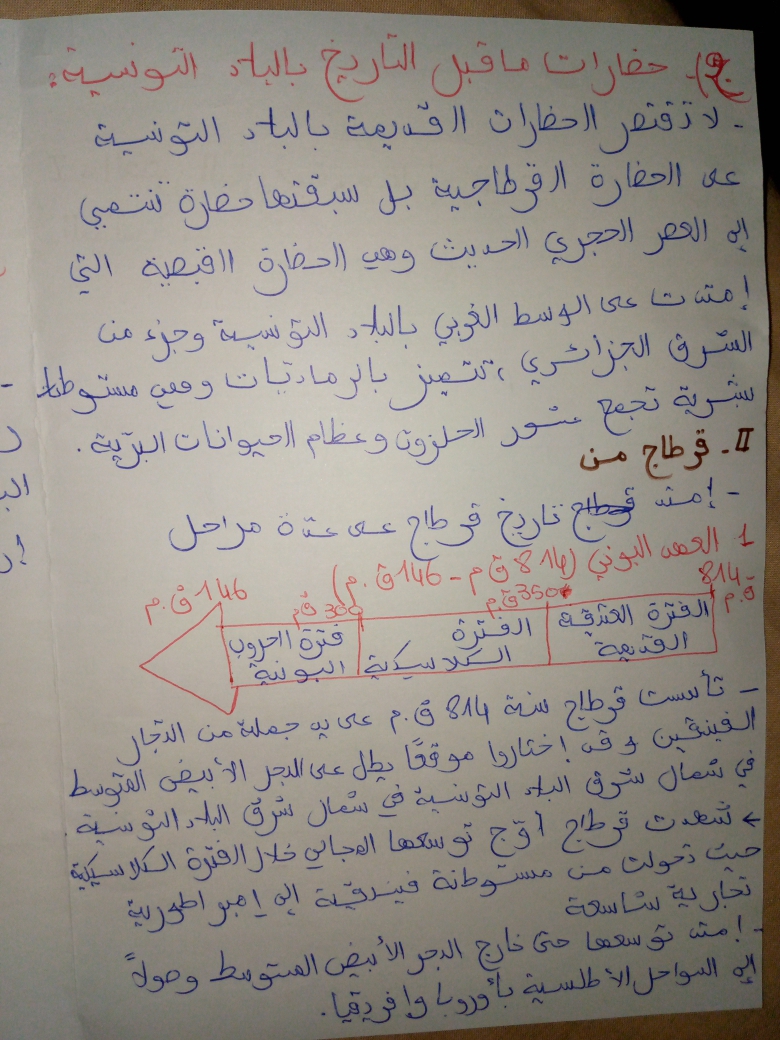 ج)- حضارات ماقبل التاريخ بالبلاد التونسية:
- لا تقتصر الحضارات القديمة بالبلاد التونسية
على الحضارة القرطاجية بل سبقتها حضارة تنتمي
إلى العصر الحجري الحديث وهي الحضارة القبصية التي
إمتدت على الوسط الغربي بالبلاد التونسية وجزء من
الشرق الجزائري، تتميز بالرماديات وهي مستوطنات
بشرية تجمع قشور الحلزون وعظام الحيوانات البرّية.
II- قرطاج من
- إمتد تاريخ قرطاج على عدة مراحل
1 العهد البوني (814 ق م - 146 ق.م)
814- ق.م
350 ق.م
300 ق م
146 ق.م
الفترة العتيقة القديمة
الفترة الكلاسيكية
فترة الحروب البونية
- تأسست قرطاج سنة 814 ق.م على يد جملة من التجار
الفينقين وقد إختاروا موقعًا يطل على البحر الأبيض المتوسط
في شمال شرق البلاد التونسية في شمال شرق البلاد التونسية.
← شهدت قرطاج أوج توسعها المجالي خلال الفترة الكلاسيكية
حيث تحولت من مستوطنة فينيقية إلى إمبراطورية
تجارية شاسعة
- إمتد توسعها حتى خارج البحر الأبيض المتوسط وصولاً
إلى السواحل الأطلسية بأوروبا وإفريقيا.